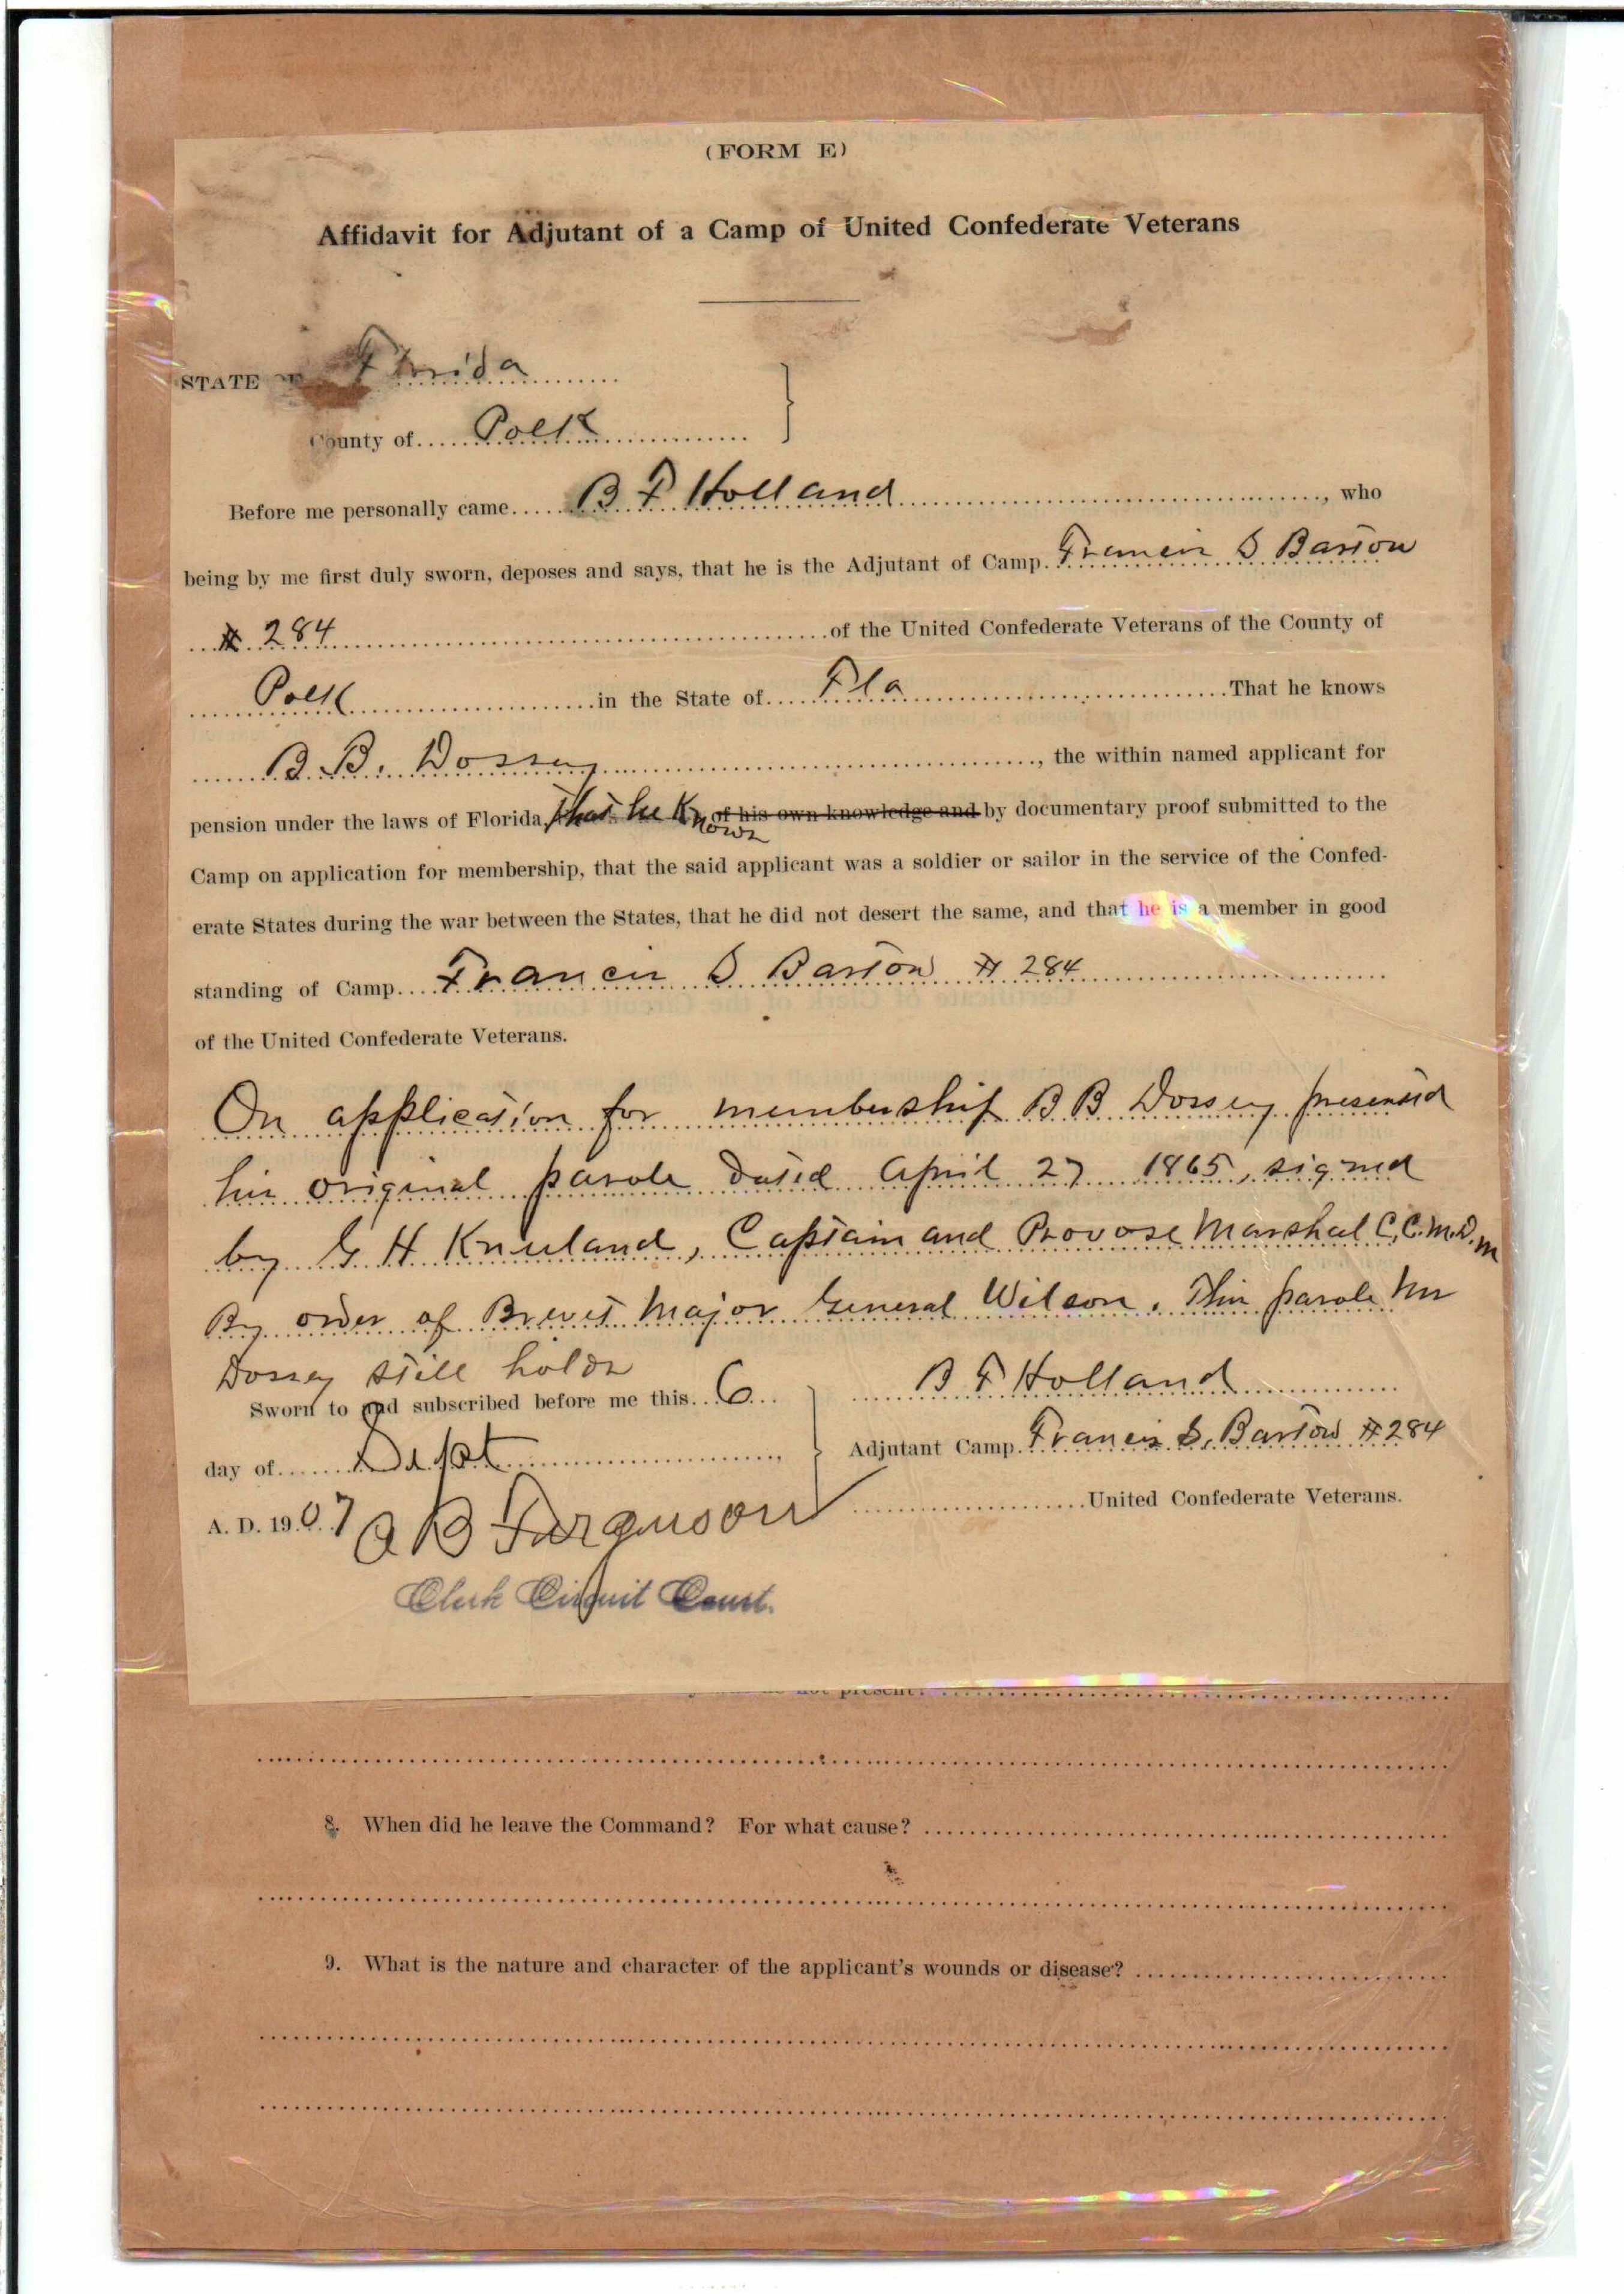 (FORM E)
Affidavit for Adjutant of a Camp of United Confederate Veterans
STATE OF Florida
County of Polk
Before me personally came B F Holland, who
being by me first duly sworn, deposes and says, that he is the Adjutant of Camp Francis S Bartow
# 284 of the United Confederate Veterans of the County of
Polk in the State of Fla That he knows
B. B. Dossey, the within named applicant for
pension under the laws of Florida, That he Knows of his own knowledge and by documentary proof submitted to the
Camp on application for membership, that the said applicant was a soldier or sailor in the service of the Confed-
erate States during the war between the States, that he did not desert the same, and that he is a member in good
standing of Camp Francis S Bartow # 284
of the United Confederate Veterans.
On application for membership B B Dossey presented
his original parole dated April 27 1865, signed
by G H Kneeland, Captain and Provose Marshal C.C.M.D.M
By order of Brevet Major General Wilson. This parole Mr
Dossey still holds
Sworn to and subscribed before me this 6 B F Holland
day of Sept, Adjutant Camp Francis S. Bartow # 284
A. D. 1907 A B Ferguson United Confederate Veterans.
Clerk Circuit Court.
not present?
8. When did he leave the Command? For what cause?
9. What is the nature and character of the applicant's wounds or disease?